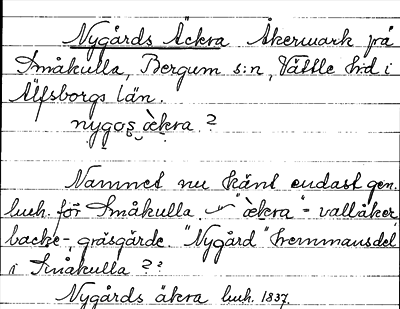 Nygårds Äckra Åkermark på
Småkulla, Bergum s:n, Vättle h:d i
Älfsborgs län.
nygo̜s̜ ὲckra ?
Namnet nu känt endast gen.
huh. för Småkulla. "äckra" = vallåker
backe-, gräsgärde. "Nygård" hemmansdel
i Småkulla ??
Nygårds äkra huh. 1837.